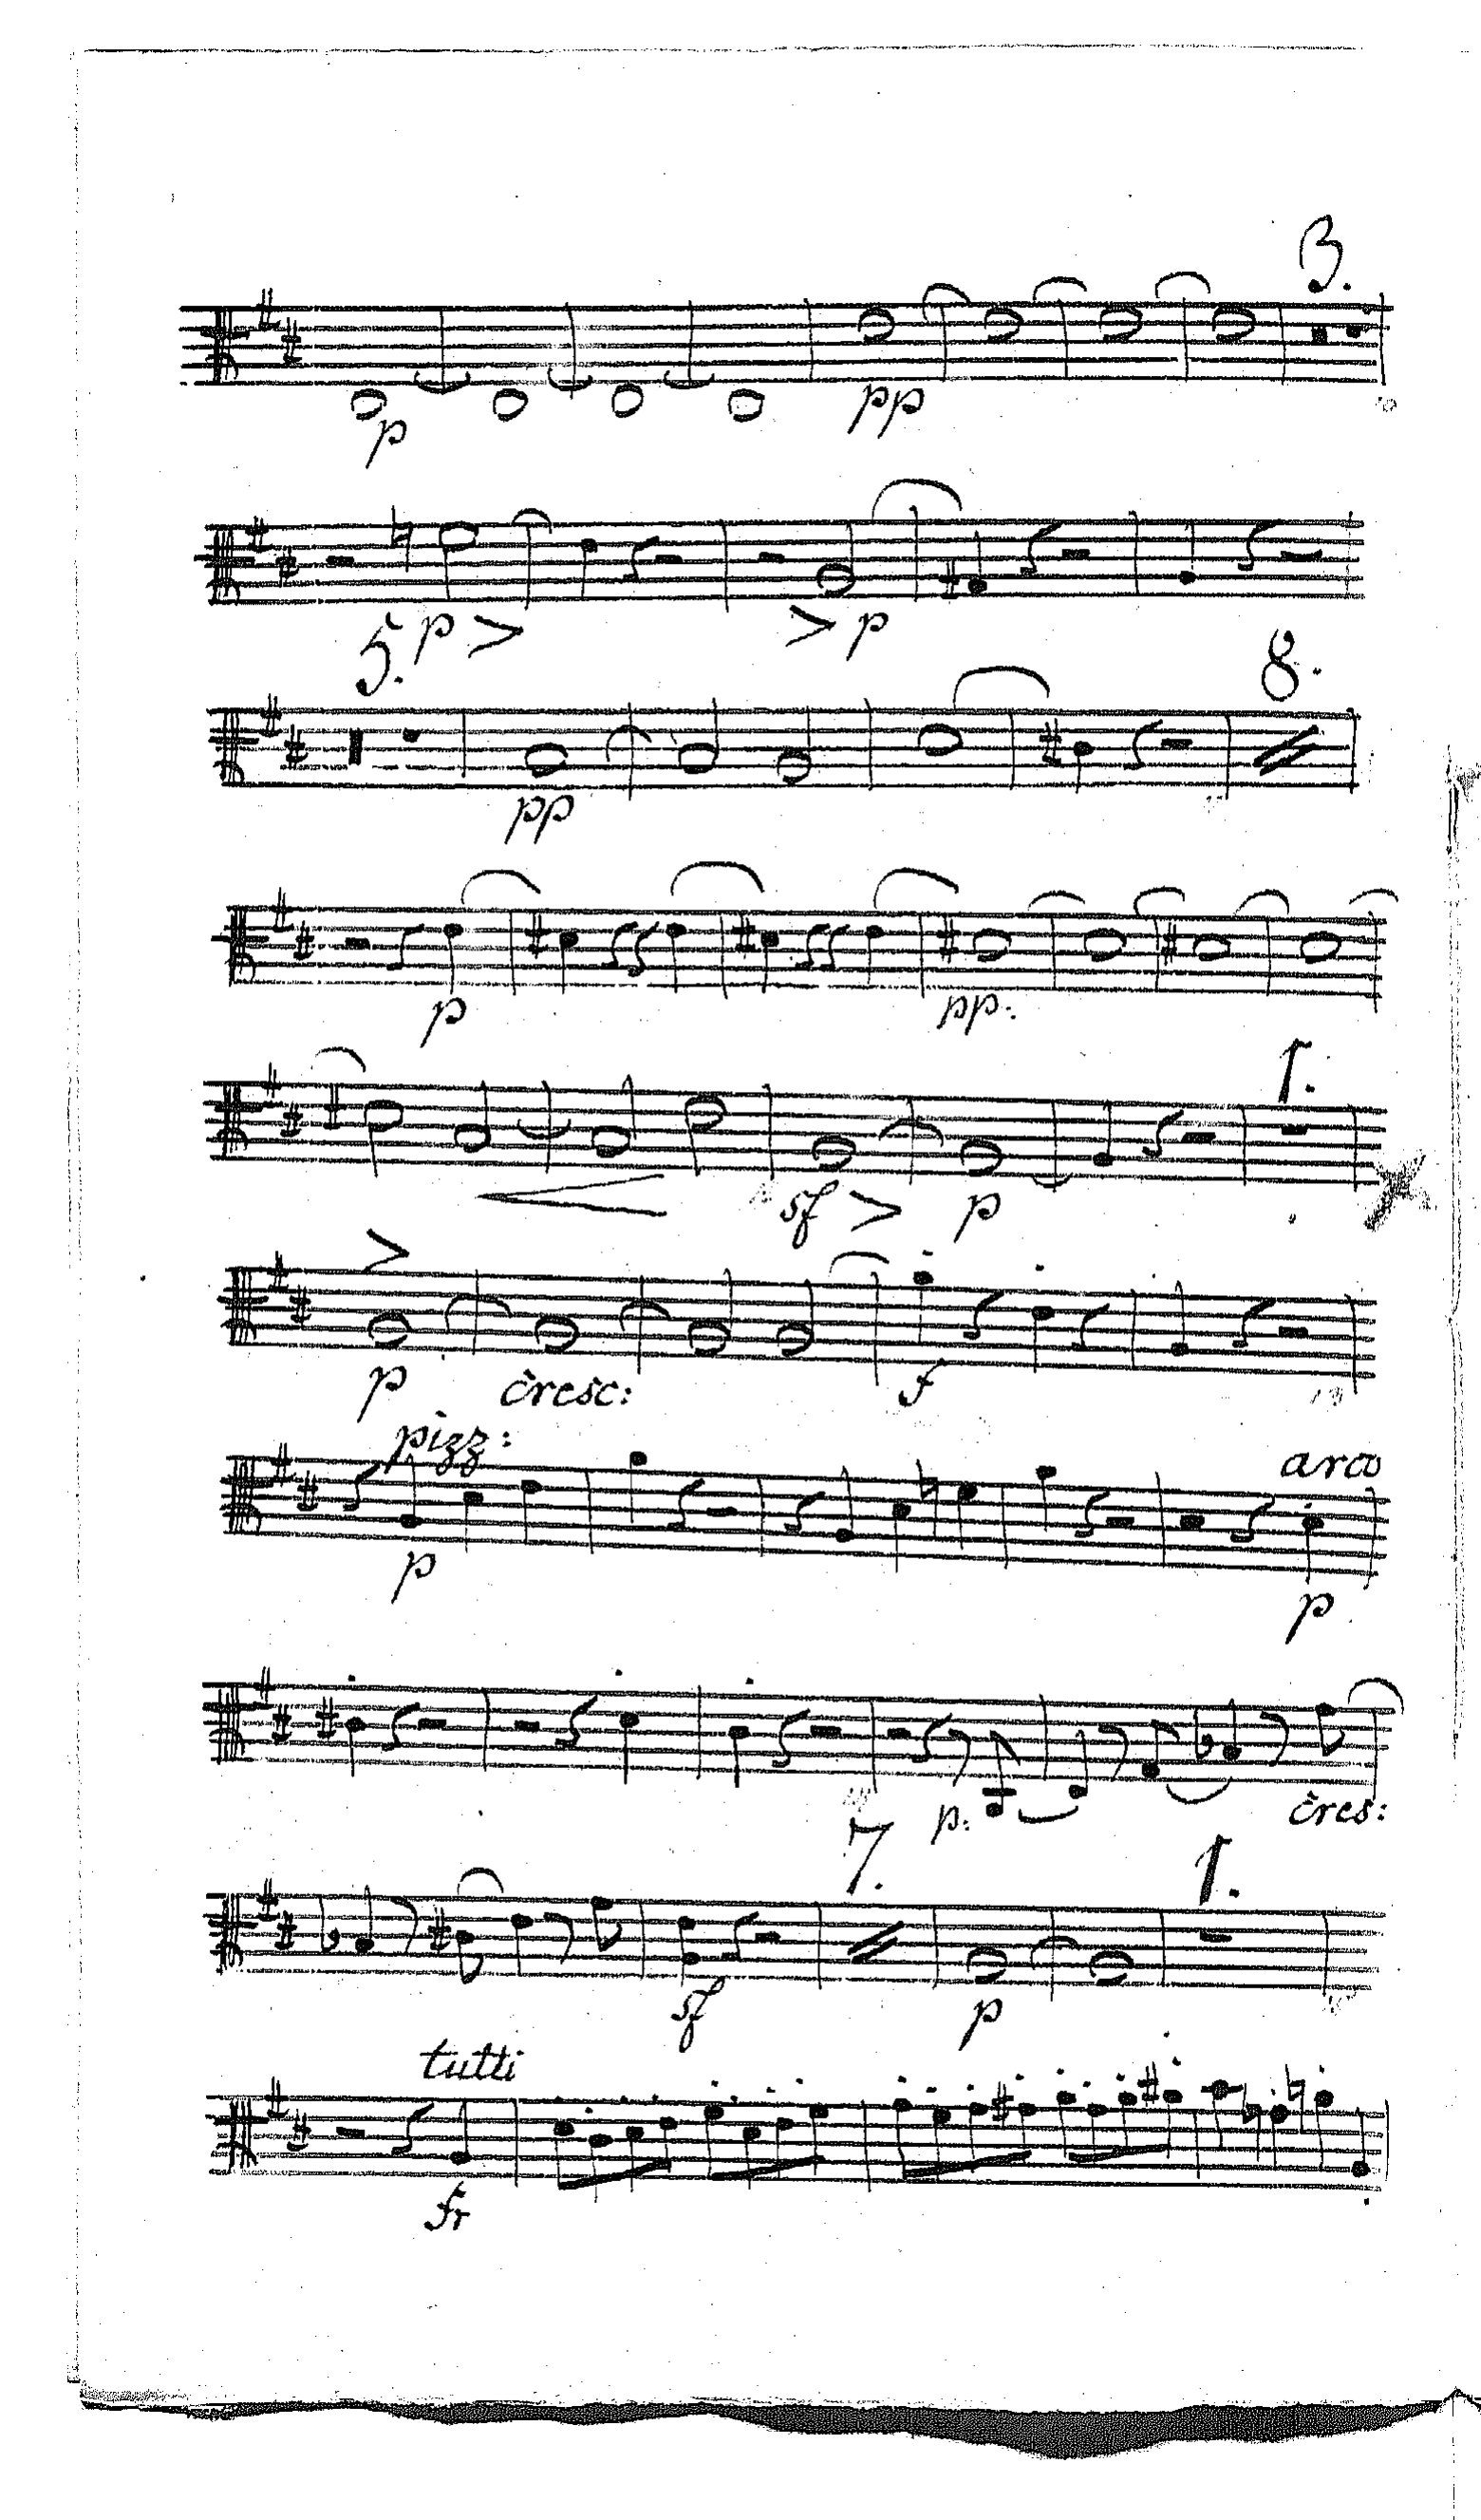 3.
p pp
p > > p
5. 8.
pp
p pp:
1.
sf > p
>
p cresc: f
pizz: arco
p p
p: cres:
7. 1.
sf p
tutti
fr